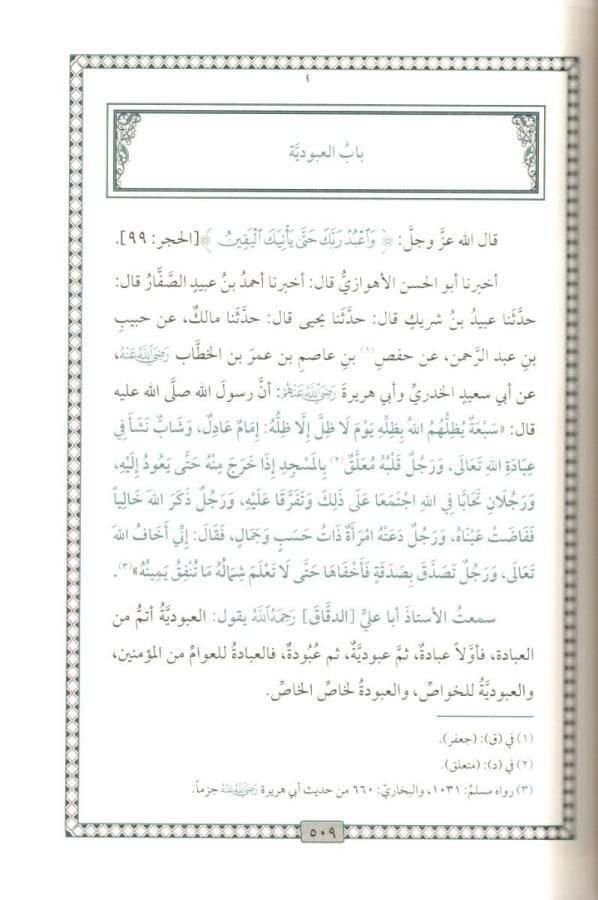 بابُ العبوديَّة
قال الله عزَّ وجلَّ: ﴿وَٱعْبُدْ رَبَّكَ حَتَّى يَأْتِيَكَ ٱلْيَقِينُ﴾ [الحجر: ٩٩].
أخبرنا أبو الحسن الأهوازيُّ قال: أخبرنا أحمدُ بنُ عبيدٍ الصَّفَّارُ قال:
حدَّثَنا عبيدُ بنُ شريكٍ قال: حدَّثَنا يحيى قال: حدَّثَنا مالكٌ، عن حبيبِ
بنِ عبد الرَّحمن، عن حفصِ(١) بنِ عاصمِ بن عمرَ بن الخطَّاب رَضِيَ ٱللَّهُ عَنْهُ،
عن أبي سعيدٍ الخدريِّ وأبي هريرةَ رَضِيَ ٱللَّهُ عَنْهُمْ: أنَّ رسولَ الله صلَّى الله عليه
قال: «سَبْعَةٌ يُظِلُّهُمُ اللهُ بِظِلِّهِ يَوْمَ لَا ظِلَّ إِلَّا ظِلُّهُ: إِمَامٌ عَادِلٌ، وَشَابٌّ نَشَأَ فِي
عِبَادَةِ اللهِ تَعَالَى، وَرَجُلٌ قَلْبُهُ مُعَلَّقٌ(٢) بِالمَسْجِدِ إِذَا خَرَجَ مِنْهُ حَتَّى يَعُودَ إِلَيْهِ،
وَرَجُلَانِ تَحَابَّا فِي اللهِ اجْتَمَعَا عَلَى ذَلِكَ وَتَفَرَّقَا عَلَيْهِ، وَرَجُلٌ ذَكَرَ اللهَ خَالِياً
فَفَاضَتْ عَيْنَاهُ، وَرَجُلٌ دَعَتْهُ امْرَأَةٌ ذَاتُ حَسَبٍ وَجَمَالٍ، فَقَالَ: إِنِّي أَخَافُ اللهَ
تَعَالَى، وَرَجُلٌ تَصَدَّقَ بِصَدَقَةٍ فَأَخْفَاهَا حَتَّى لَا تَعْلَمَ شِمَالُهُ مَا تُنْفِقُ يَمِينُهُ»(٣).
سمعتُ الأستاذَ أبا عليٍّ [الدقَّاقَ] رَحِمَهُ ٱللَّهُ يقول: العبوديَّةُ أتمُّ من
العبادة، فأوَّلاً عبادةٌ، ثمَّ عبوديَّةٌ، ثم عُبُودةٌ، فالعبادةُ للعوامِّ من المؤمنين،
والعبوديَّةُ للخواصِّ، والعبودةُ لخاصِّ الخاصِّ.
(١) في (ق): (جعفر).
(٢) في (د): (متعلق).
(٣) رواه مسلمٌ: ١٠٣١، والبخاريّ: ٦٦٠ من حديث أبي هريرة رَضِيَ ٱللَّهُ عَنْهُ جزماً.
٥٠٩